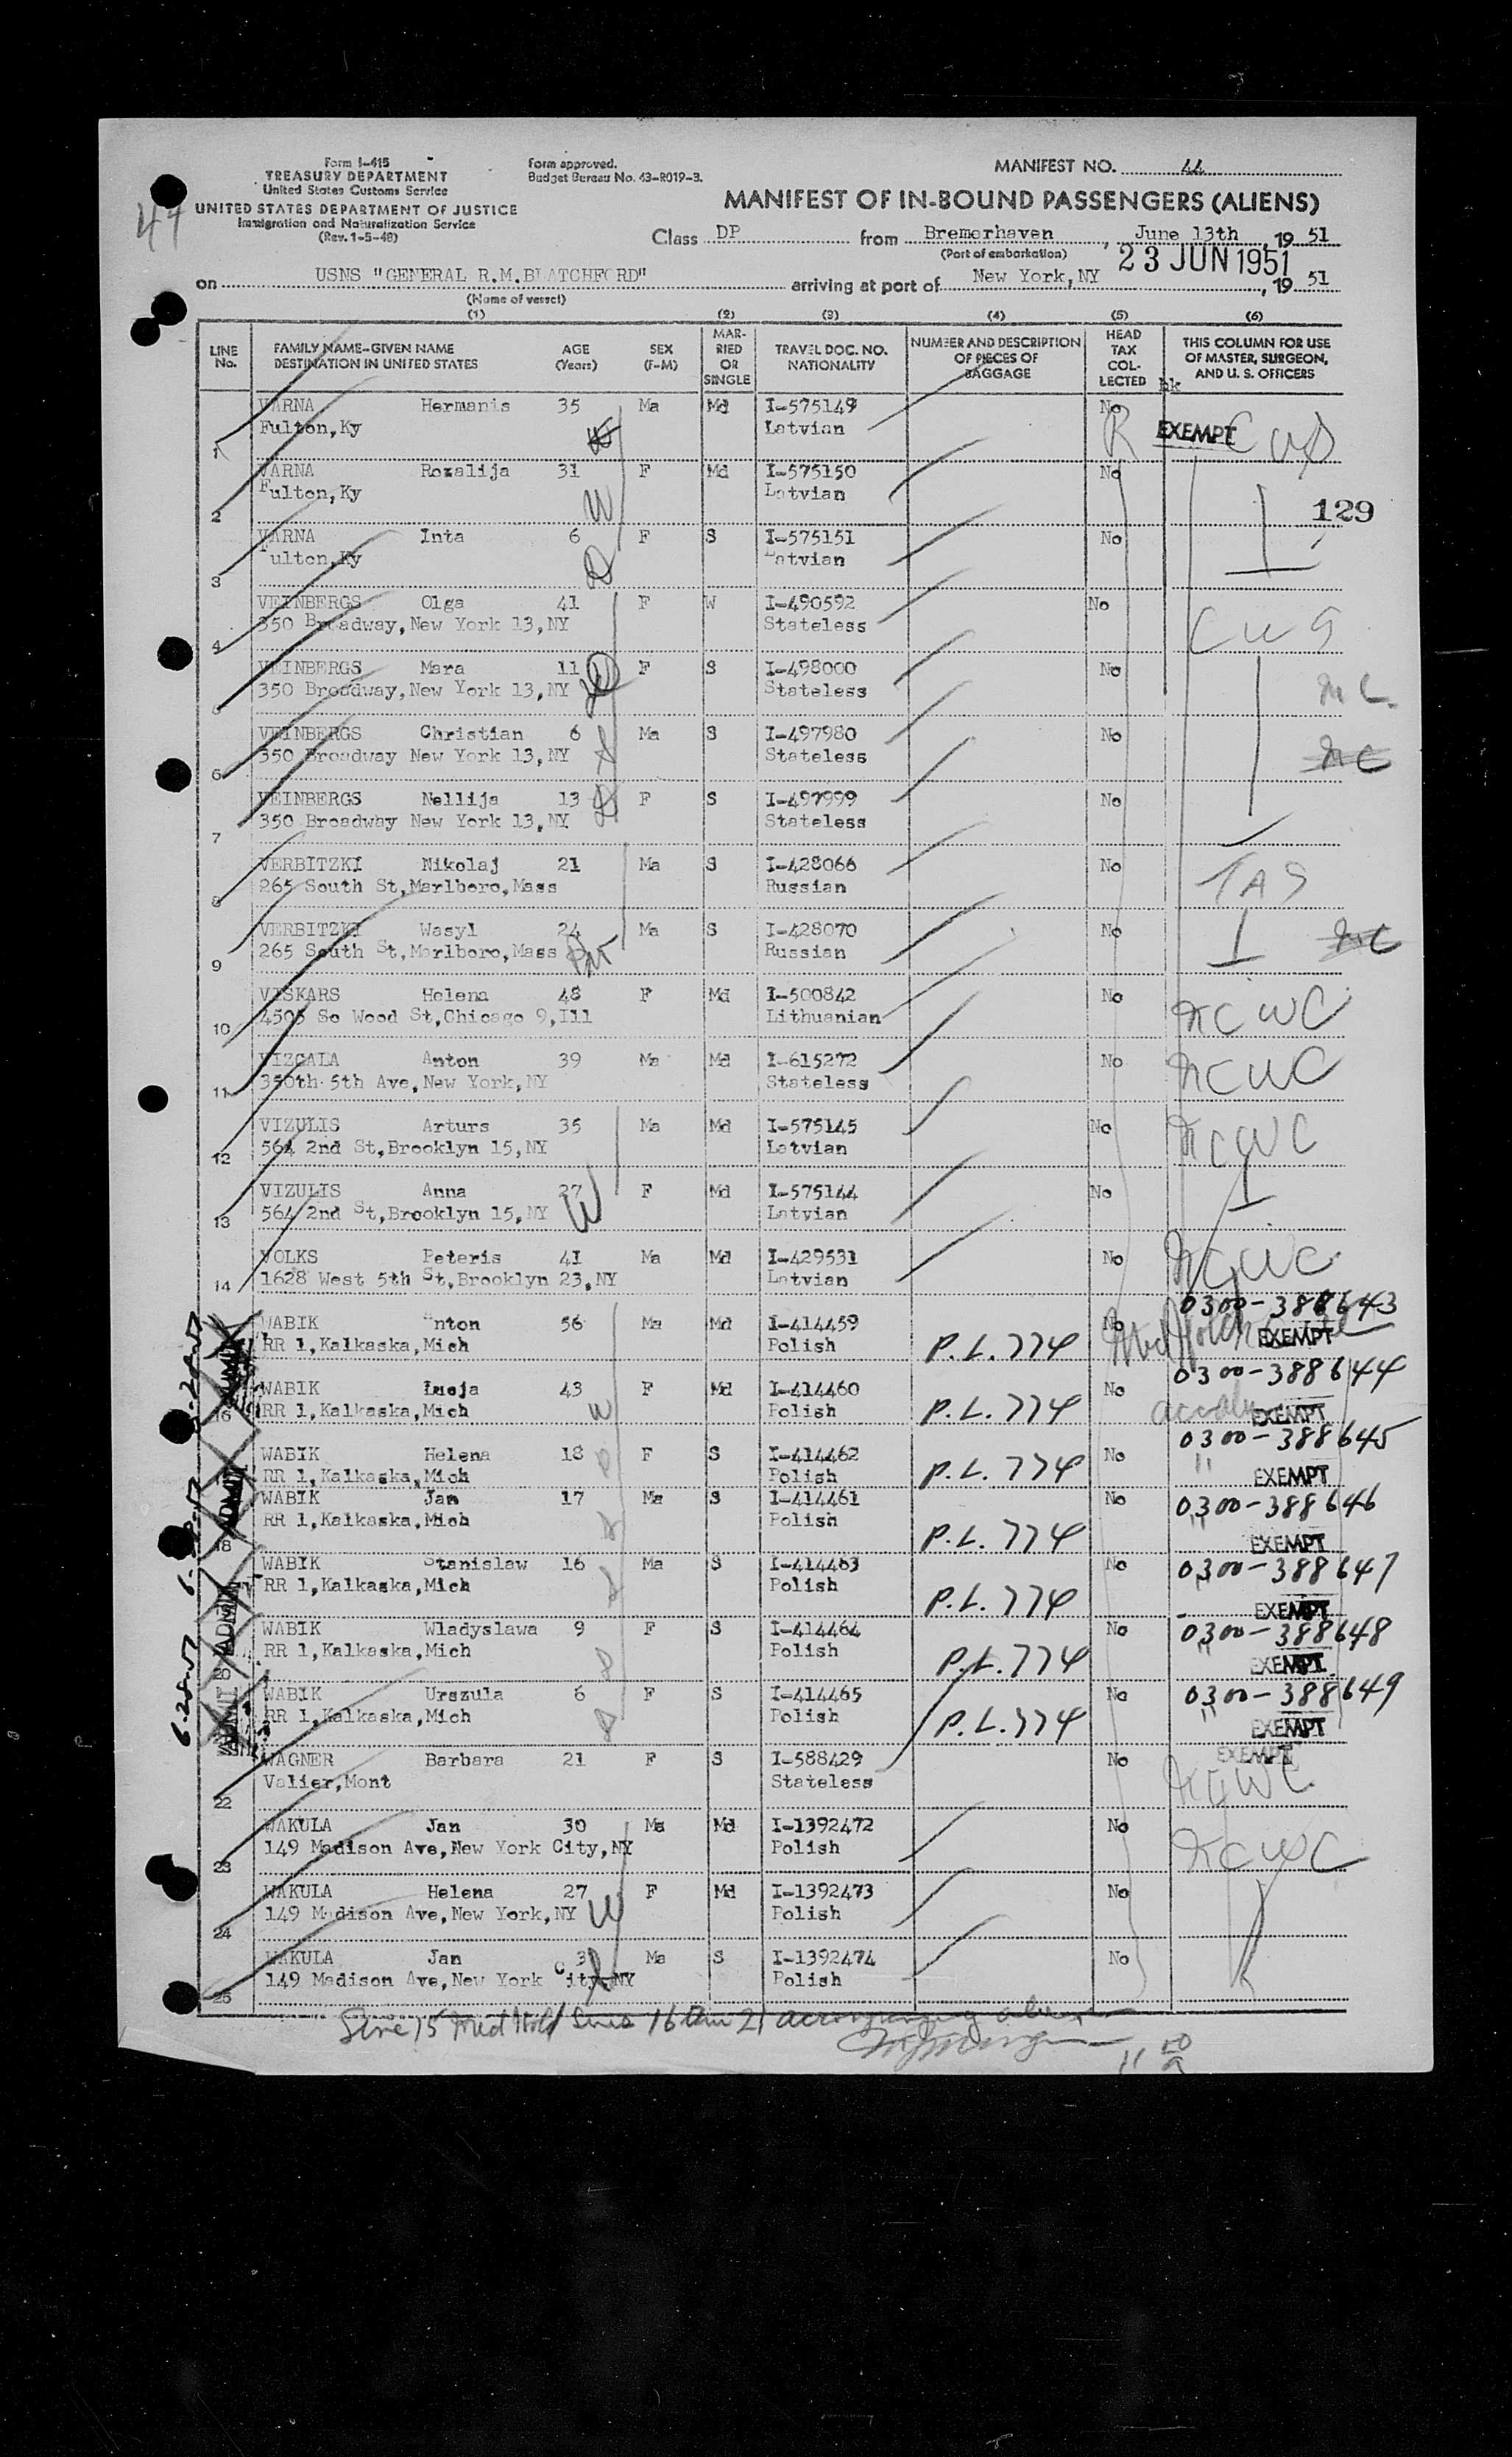 44
Form I-415
TREASURY DEPARTMENT
United States Customs Service
UNITED STATES DEPARTMENT OF JUSTICE
Immigration and Naturalization Service
(Rev. 1-5-48)
Form approved.
Budget Bureau No. 43-R019-3.
MANIFEST NO. 44
MANIFEST OF IN-BOUND PASSENGERS (ALIENS)
Class DP from Bremerhaven, June 13th, 19 51
(Port of embarkation)
23 JUN 1951
on USNS "GENERAL R.M.BLATCHFORD" arriving at port of New York,NY, 19 51
(Name of vessel)
(1) (2) (3) (4) (5) (6)
LINE No. FAMILY NAME-GIVEN NAME DESTINATION IN UNITED STATES AGE (Years) SEX (F-M) MARRIED OR SINGLE TRAVEL DOC. NO. NATIONALITY NUMBER AND DESCRIPTION OF PIECES OF BAGGAGE HEAD TAX COLLECTED THIS COLUMN FOR USE OF MASTER, SURGEON, AND U. S. OFFICERS
VARNA Hermanis 35 Ma Md I-575149 No
1 Fulton,Ky Latvian R EXEMPT CWS
VARNA Rozalija 31 F Md I-575150 No
2 Fulton,Ky W Latvian 129
VARNA Inta 6 F S I-575151 No
3 Fulton,Ky Latvian
VEINBERGS Olga 41 F W I-490592 No
4 350 Broadway,New York 13,NY Stateless CWS
VEINBERGS Mara 11 F S I-498000 No
350 Broadway,New York 13,NY Stateless
VEINBERGS Christian 6 Ma S I-497980 No
6 350 Broadway New York 13,NY Stateless
VEINBERGS Nellija 13 F S I-497999 No
7 350 Broadway New York 13,NY Stateless
VERBITZKI Nikolaj 21 Ma S I-428066 No
8 265 South St,Marlboro,Mass Russian
VERBITZKI Wasyl 24 Ma S I-428070 No
9 265 South St,Marlboro,Mass Russian
VISKARS Helena 48 F Md I-500842 No
10 4505 So Wood St,Chicago 9,Ill Lithuanian NCWC
VIZGALA Anton 39 Ma Md I-615272 No
11 350th 5th Ave,New York,NY Stateless NCWC
VIZULIS Arturs 35 Ma Md I-575145 No
12 564 2nd St,Brooklyn 15,NY Latvian NCWC
VIZULIS Anna 27 F Md I-575144 No
13 564 2nd St,Brooklyn 15,NY W Latvian
VOLKS Peteris 41 Ma Md I-429531 No
14 1628 West 5th St,Brooklyn 23,NY Latvian NCWC
WABIK Anton 56 Ma Md I-414459 No 0300-388643
RR 1,Kalkaska,Mich Polish P.L.774 EXEMPT
WABIK Lucja 43 F Md I-414460 No 0300-388644
16 RR 1,Kalkaska,Mich W Polish P.L.774 EXEMPT
WABIK Helena 18 F S I-414462 No 0300-388645
RR 1,Kalkaska,Mich Polish P.L.774 " EXEMPT
WABIK Jan 17 Ma S I-414461 No 0300-388646
18 RR 1,Kalkaska,Mich Polish P.L.774 " EXEMPT
WABIK Stanislaw 16 Ma S I-414463 No 0300-388647
RR 1,Kalkaska,Mich Polish P.L.774 " EXEMPT
WABIK Wladyslawa 9 F S I-414464 No 0300-388648
20 RR 1,Kalkaska,Mich Polish P.L.774 " EXEMPT
WABIK Urszula 6 F S I-414465 No 0300-388649
RR 1,Kalkaska,Mich Polish P.L.774 " EXEMPT
WAGNER Barbara 21 F S I-588429 No EXEMPT
22 Valier,Mont Stateless NCWC
WAKULA Jan 30 Ma Md I-1392472 No
23 149 Madison Ave,New York City,NY Polish NCWC
WAKULA Helena 27 F Md I-1392473 No
24 149 Madison Ave,New York,NY W Polish
WAKULA Jan 3 Ma S I-1392474 No
25 149 Madison Ave,New York City,NY Polish
Line 15 Med Hold Lines 16 thru 21 accompanying alien